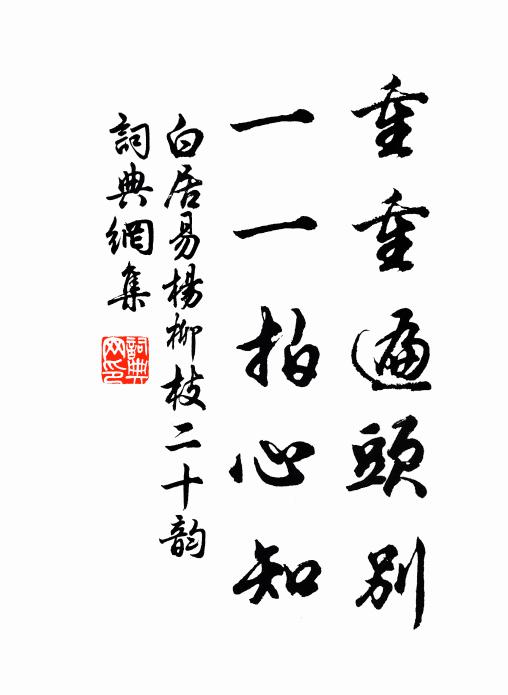 重重遍頭別
一一拍心知
白居易楊柳枝二十韵
詞典網集
詞典網印